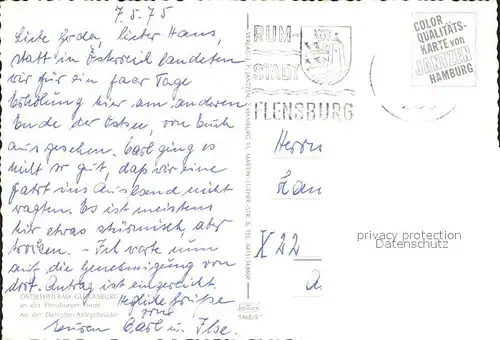 7.5.75
Liebe Gerda, lieber Hans,
statt in Österreich landeten
wir für ein paar Tage
Erholung hier am anderen
Ende der Ostsee, von Euch
aus gesehen. Carl ging es
nicht so gut, daß wir eine
Fahrt ins Ausland nicht
wagten. Es ist meistens
hier etwas stürmisch, aber
trocken. - Ich warte nun
auf die Genehmigung von
dort. Antrag ist eingereicht.
Herzliche Grüße
Euren Carl u. Ilse.
OSTSEEHEILBAD GLÜCKSBURG
an der Flensburger Förde
An der Dampfer-Anlegebrücke
RUM-
STADT
FLENSBURG
COLOR
QUALITÄTS-
KARTE von
JANTZEN
HAMBURG
Herrn
X 22
privacy protection
Datenschutz